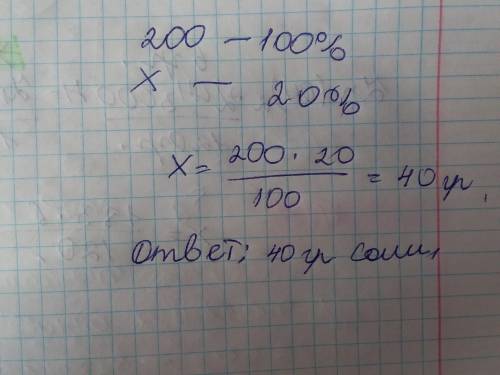 200 – 100%
X – 20%
X = 200 · 20 / 100 = 40 гр.
Ответ: 40 гр соли.